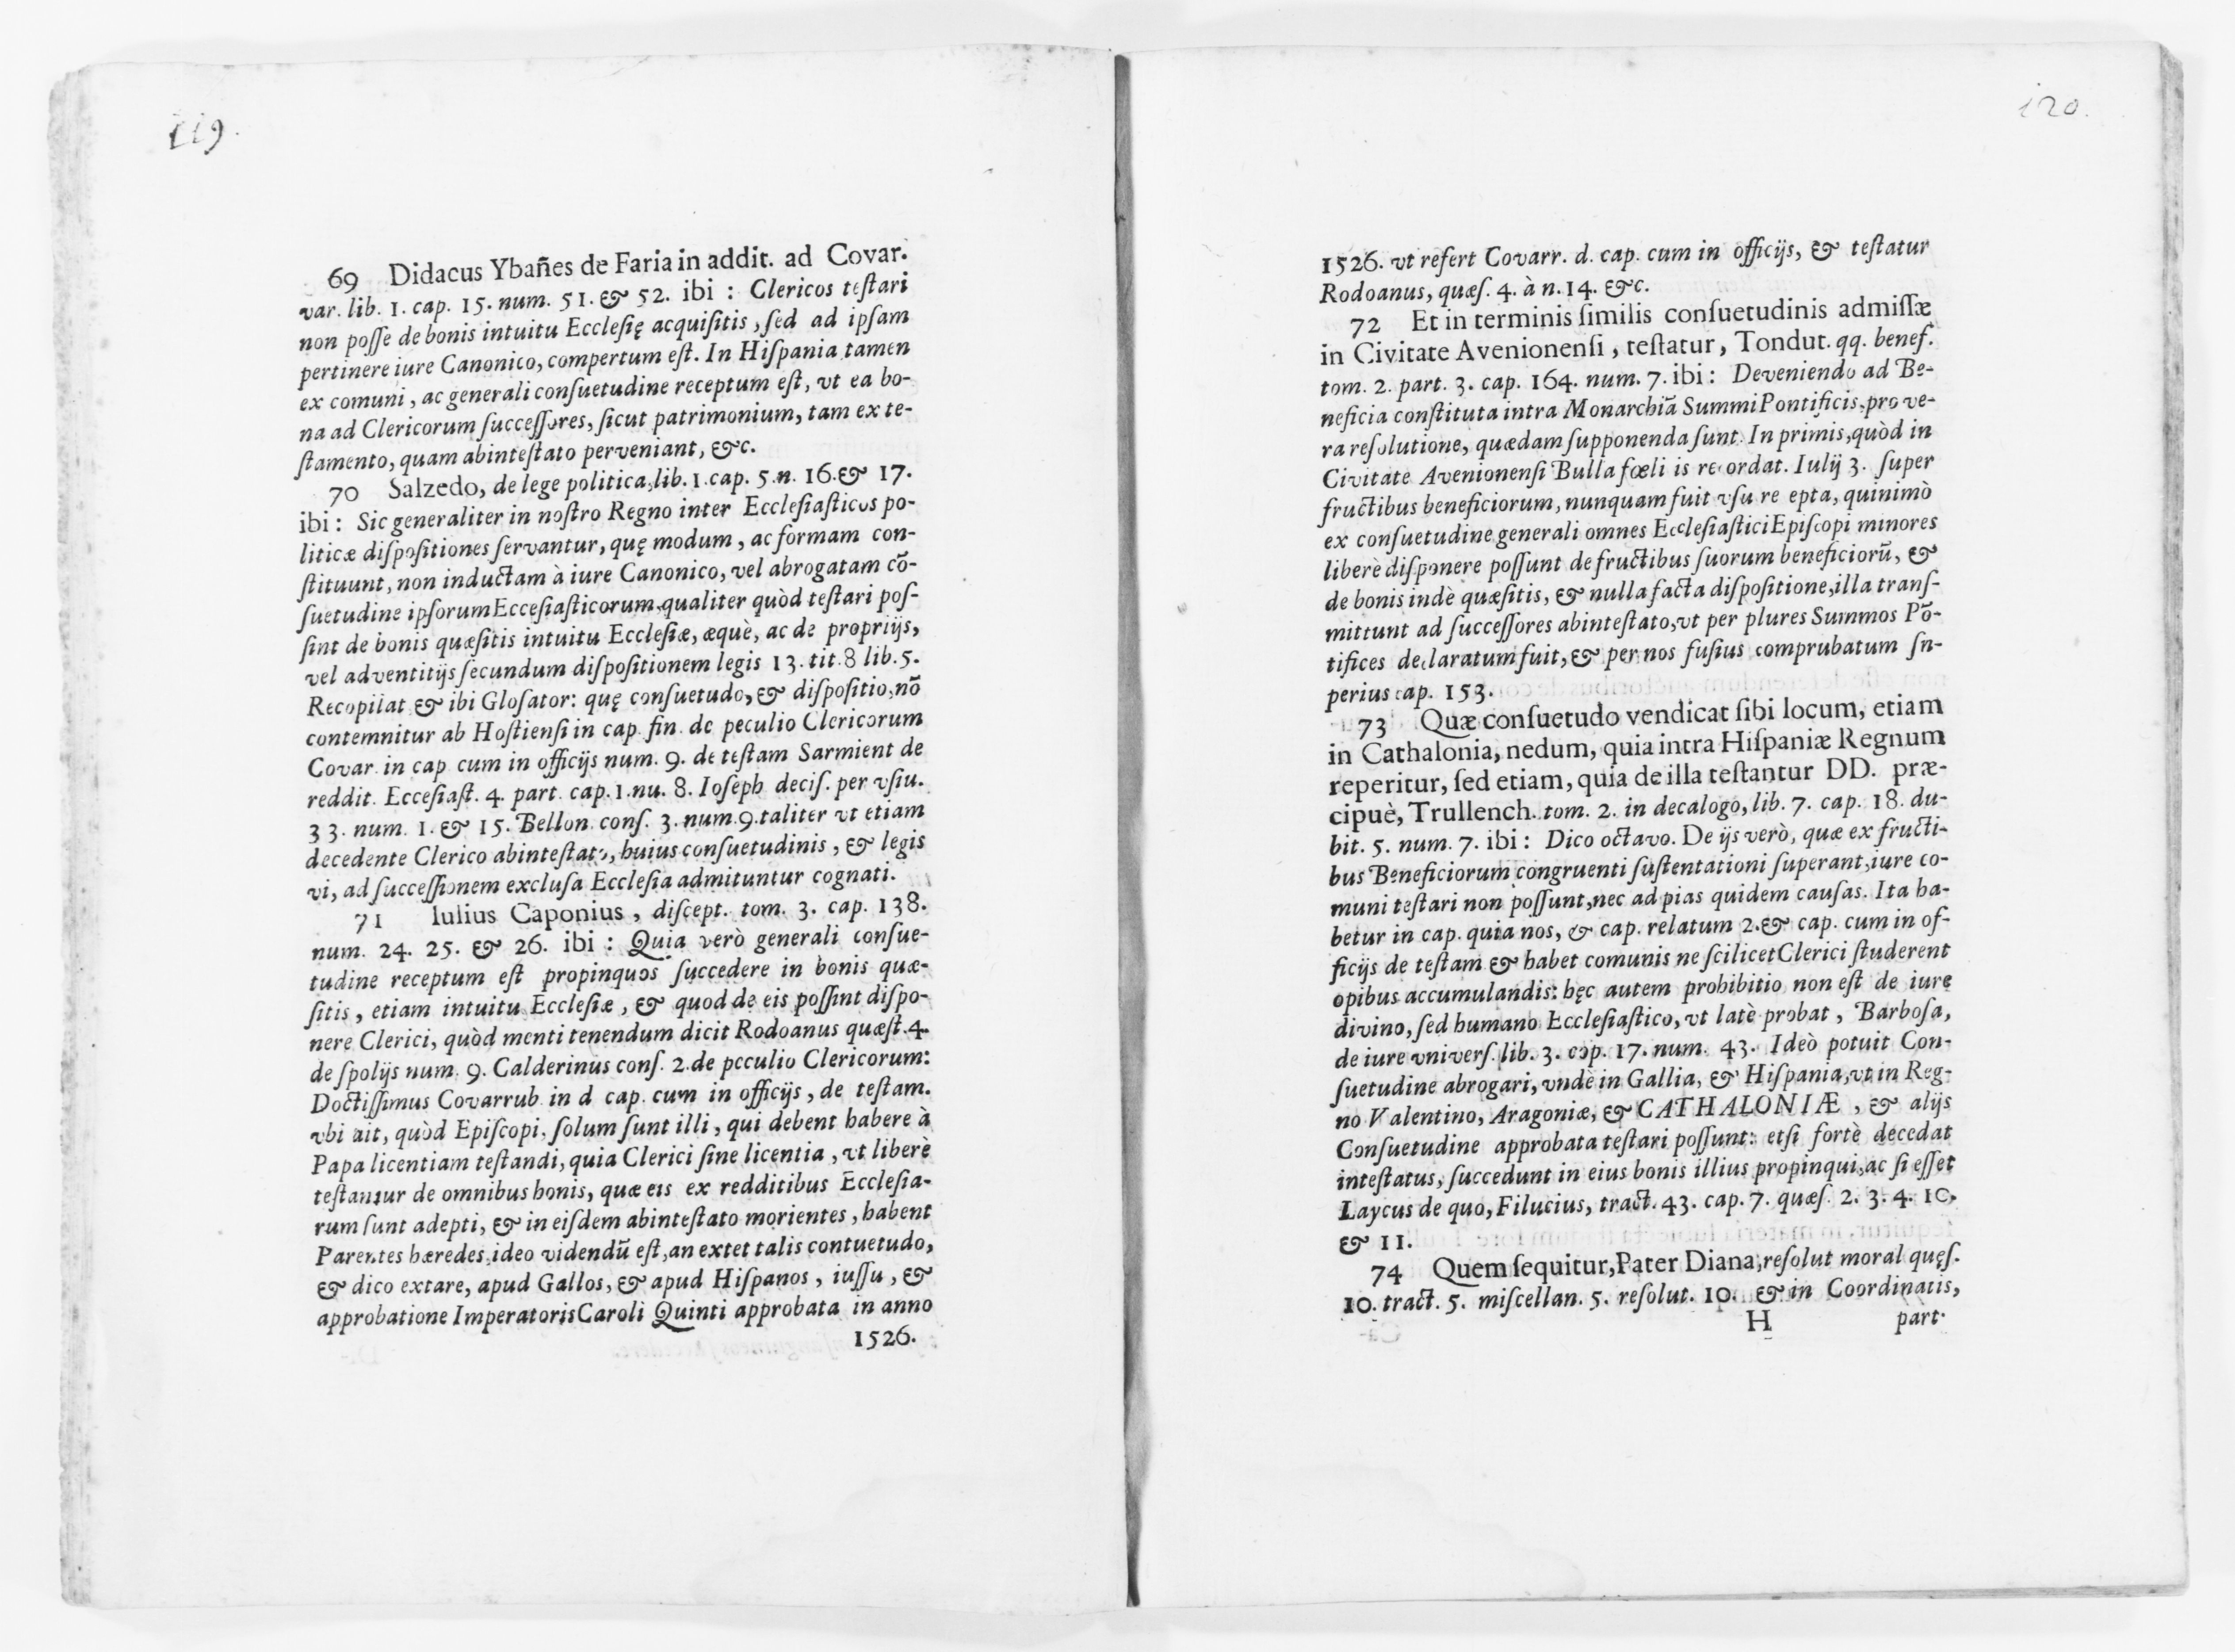 119.
69 Didacus Ybañes de Faria in addit. ad Covar.
var. lib. 1. cap. 15. num. 51. & 52. ibi : Clericos teſtari
non poſſe de bonis intuitu Eccleſię acquiſitis, ſed ad ipſam
pertinere iure Canonico, compertum eſt. In Hiſpania tamen
ex comuni, ac generali conſuetudine receptum eſt, vt ea bo-
na ad Clericorum ſucceſſores, ſicut patrimonium, tam ex te-
ſtamento, quam abinteſtato perveniant, &c.
70 Salzedo, de lege politica, lib. 1. cap. 5. n. 16. & 17.
ibi : Sic generaliter in noſtro Regno inter Eccleſiaſticos po-
liticæ diſpoſitiones ſervantur, quę modum, ac formam con-
ſtituunt, non inductam à iure Canonico, vel abrogatam cõ-
ſuetudine ipſorum Ecceſiaſticorum, qualiter quòd teſtari poſ-
ſint de bonis quæſitis intuitu Eccleſiæ, æquè, ac de proprijs,
vel adventitijs ſecundum diſpoſitionem legis 13. tit. 8 lib. 5.
Recopilat & ibi Gloſator: quę conſuetudo, & diſpoſitio, nõ
contemnitur ab Hoſtienſi in cap. fin. de peculio Clericorum
Covar. in cap cum in officijs num. 9. de teſtam Sarmient de
reddit. Ecceſiaſt. 4. part. cap. 1. nu. 8. Ioſeph deciſ. per vſiu.
33. num. 1. & 15. Bellon. conſ. 3. num. 9. taliter vt etiam
decedente Clerico abinteſtato, huius conſuetudinis, & legis
vi, ad ſucceſſionem excluſa Eccleſia admituntur cognati.
71 Iulius Caponius, diſcept. tom. 3. cap. 138.
num. 24. 25. & 26. ibi : Quia verò generali conſue-
tudine receptum eſt propinquos ſuccedere in bonis quæ-
ſitis, etiam intuitu Eccleſiæ, & quod de eis poſſint diſpo-
nere Clerici, quòd menti tenendum dicit Rodoanus quæſt. 4.
de ſpolijs num. 9. Calderinus conſ. 2. de peculio Clericorum:
Doctiſſimus Covarrub. in d cap. cum in officijs, de teſtam.
vbi ait, quòd Epiſcopi, ſolum ſunt illi, qui debent habere à
Papa licentiam teſtandi, quia Clerici ſine licentia, vt liberè
teſtantur de omnibus bonis, quæ eis ex redditibus Eccleſia-
rum ſunt adepti, & in eiſdem abinteſtato morientes, habent
Parentes hæredes, ideo videndũ eſt, an extet talis contuetudo,
& dico extare, apud Gallos, & apud Hiſpanos, iuſſu, &
approbatione Imperatoris Caroli Quinti approbata in anno
1526.
120.
1526. vt refert Covarr. d. cap. cum in officijs, & teſtatur
Rodoanus, quæſ. 4. à n. 14. &c.
72 Et in terminis ſimilis conſuetudinis admiſſæ
in Civitate Avenionenſi, teſtatur, Tondut. qq. beneſ.
tom. 2. part. 3. cap. 164. num. 7. ibi : Deveniendo ad Be-
neficia conſtituta intra Monarchiã Summi Pontificis, pro ve-
ra reſolutione, quædam ſupponenda ſunt. In primis, quòd in
Civitate Avenionenſi Bulla fœli is recordat. Iulij 3. ſuper
fructibus beneficiorum, nunquam fuit vſu re epta, quinimò
ex conſuetudine generali omnes Eccleſiaſtici Epiſcopi minores
liberè diſponere poſſunt de fructibus ſuorum beneficiorũ, &
de bonis indè quæſitis, & nulla facta diſpoſitione, illa tranſ-
mittunt ad ſucceſſores abinteſtato, vt per plures Summos Põ-
tifices declaratum fuit, & per nos fuſius comprubatum ſn-
perius cap. 153.
73 Quæ conſuetudo vendicat ſibi locum, etiam
in Cathalonia, nedum, quia intra Hiſpaniæ Regnum
reperitur, ſed etiam, quia de illa teſtantur DD. præ-
cipuè, Trullench. tom. 2. in decalogo, lib. 7. cap. 18. du-
bit. 5. num. 7. ibi : Dico octavo. De ijs verò, quæ ex fructi-
bus Beneficiorum congruenti ſuſtentationi ſuperant, iure co-
muni teſtari non poſſunt, nec ad pias quidem cauſas. Ita ha-
betur in cap. quia nos, & cap. relatum 2. & cap. cum in of-
ficijs de teſtam & habet comunis ne ſcilicet Clerici ſtuderent
opibus accumulandis: hęc autem prohibitio non eſt de iure
divino, ſed humano Eccleſiaſtico, vt latè probat, Barboſa,
de iure vniverſ. lib. 3. cap. 17. num. 43. Ideò potuit Con-
ſuetudine abrogari, vndè in Gallia, & Hiſpania, vt in Reg-
no Valentino, Aragoniæ, & CATHALONIÆ, & alijs
Conſuetudine approbata teſtari poſſunt: etſi fortè decedat
inteſtatus, ſuccedunt in eius bonis illius propinqui, ac ſi eſſet
Laycus de quo, Filucius, tract. 43. cap. 7. quæſ. 2. 3. 4. 10.
& 11.
74 Quem ſequitur, Pater Diana, reſolut moral quęſ.
10. tract. 5. miſcellan. 5. reſolut. 10. & in Coordinatis,
H part.